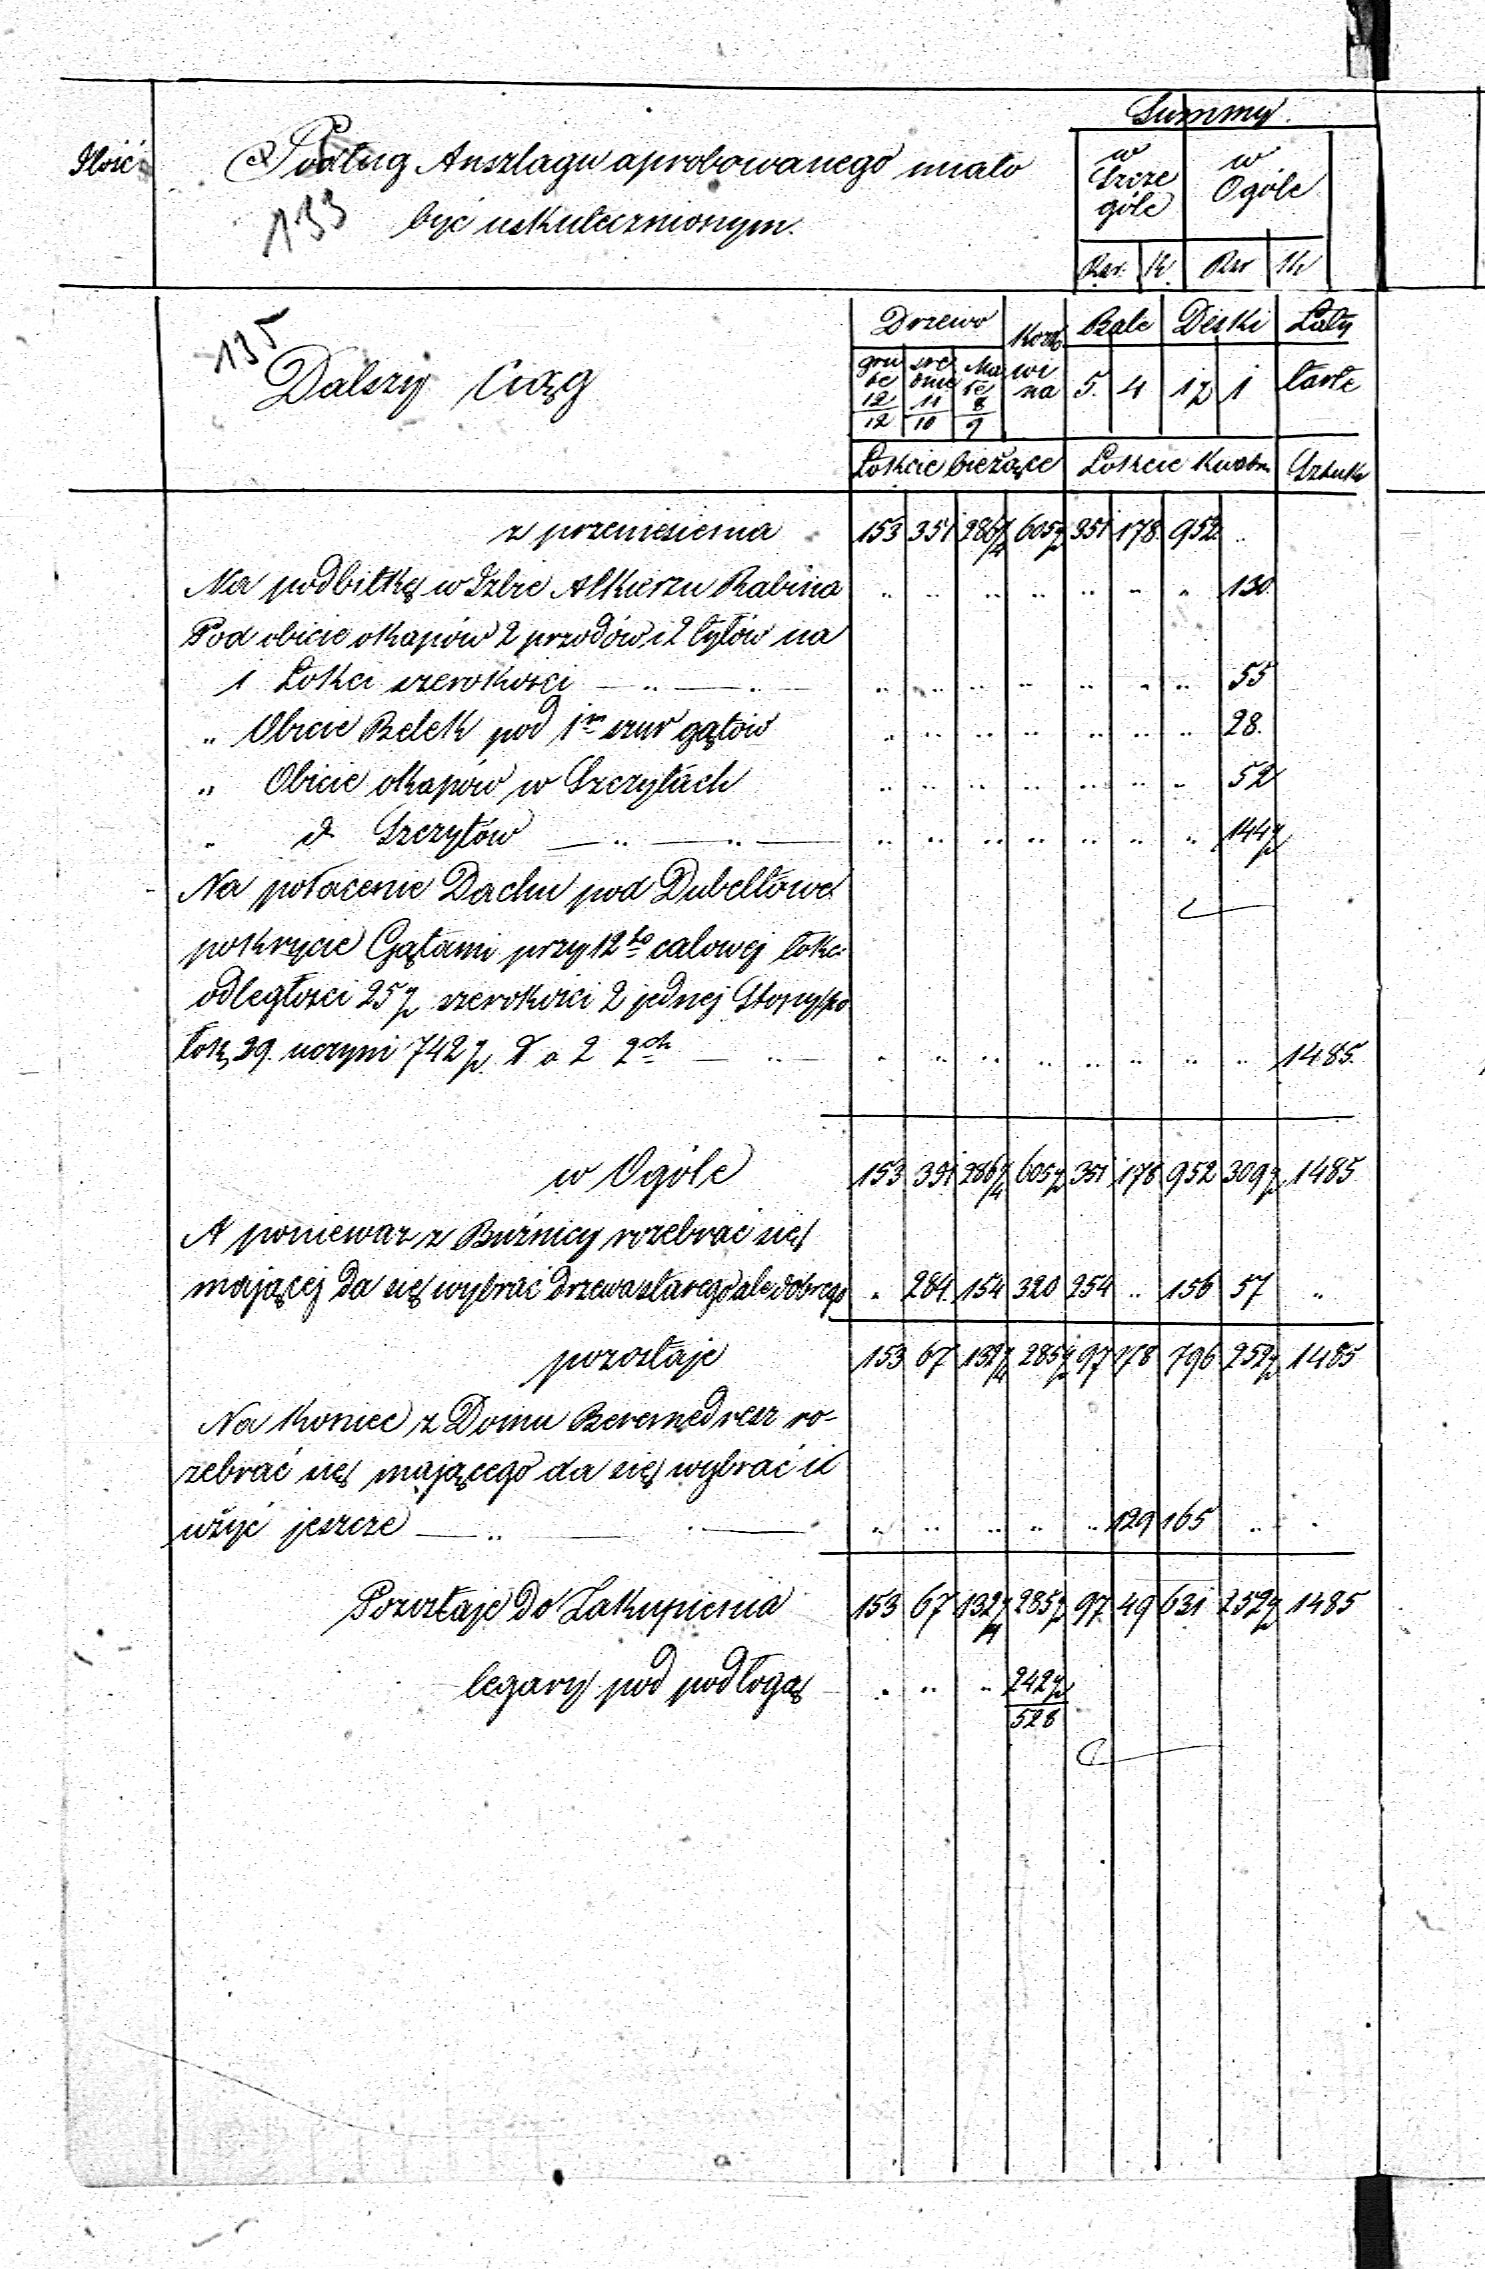 Summy.
Ilość
Podług Anszlagu aprobowanego miało
być uskutecznionym.
133
w Szcze góle
w Ogóle
Rsr. K. Rsr K
135
Dalszy Ciąg
Drzewo Bale Deski Łaty
gru be 12/12 sre dnie 11/10 Ma łe 8/9 Krok wi na 5. 4 1½ 1 tarte
Łokcie bieżące Łokcie Kwadr. Sztuk
z przeniesienia 153 351 286¼ 605½ 351 178 952 ..
Na podbitkę w Izbie Alkierzu Rabina .. .. .. .. .. .. .. 130
Pod obicie okapów 2 przodów i 2 tyłów na
1 Łokci szerokości .. .. .. .. .. .. .. .. .. 55
„ Obicie Belek pod 1m szur gątów .. .. .. .. .. .. .. 28.
„ Obicie okapów w Szczytach .. .. .. .. .. .. .. 52
„ d Szczytów .. .. .. .. .. .. .. .. .. 144½
Na połacenie Dachu pod Dubeltowe
pokrycie Gątami przy 12to calowej łokc:
odległości 25½ szerokości 2 jednej Stopy po
łok 29. uczyni 742½. d a 2 2ch .. .. .. .. .. .. .. .. .. 1485.
w Ogóle 153 351 286¼ 605½ 351 178 952 309½ 1485
A ponieważ z Buźnicy rozebrać się
mającej da się wybrać drzewa starego ale dobrego „ 284. 154 320 254 .. 156 57 ..
pozostaje 153 67 132¼ 285½ 97 178 796 252½ 1485
Na koniec z Domu ro-
zebrać się mającego da się wybrać i
użyć jeszcze .. .. .. .. .. .. .. 129 165 .. .
Pozostaje do Zakupienia 153 67 132¼ 285½ 97 49 631 252½ 1485
legary pod podłogą . .. .. 242½
528